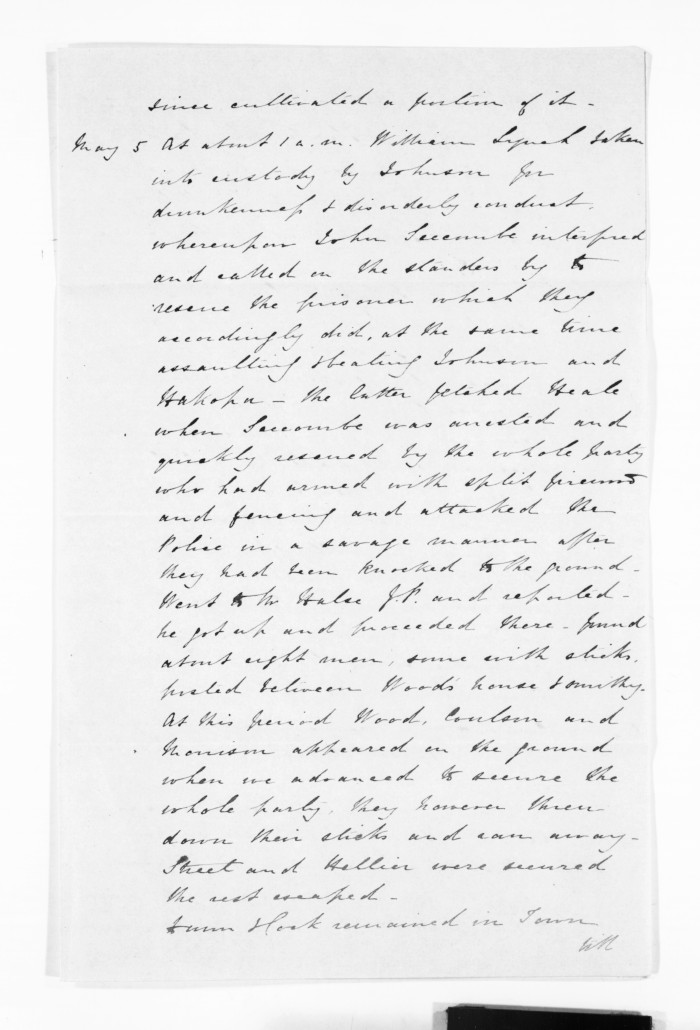 since cultivated a portion of it -
May 5 At about 1 a.m. William Lynch taken
into custody by Johnson for
drunkenness & disorderly conduct,
whereupon John Seccombe interfered
and called on the standers by to
rescue the prisoner which they
accordingly did, at the same time
assaulting & beating Johnson and
Hakopa - the latter fetched Heale
when Seccombe was arrested and
quickly rescued by the whole party
who had armed with split firewood
and fencing and attacked the
Police in a savage manner after
they had been knocked to the ground -
Went to Mr Halse J.P. and reported -
he got up and proceeded there - found
about eight men, some with sticks,
posted between Wood's house & smithy.
At this period Wood, Coulson and
Morrison appeared on the ground
when we advanced to secure the
whole party, they however threw
down their sticks and ran away -
Street and Hellier were secured
the rest escaped -
& Cook remained in Town
with